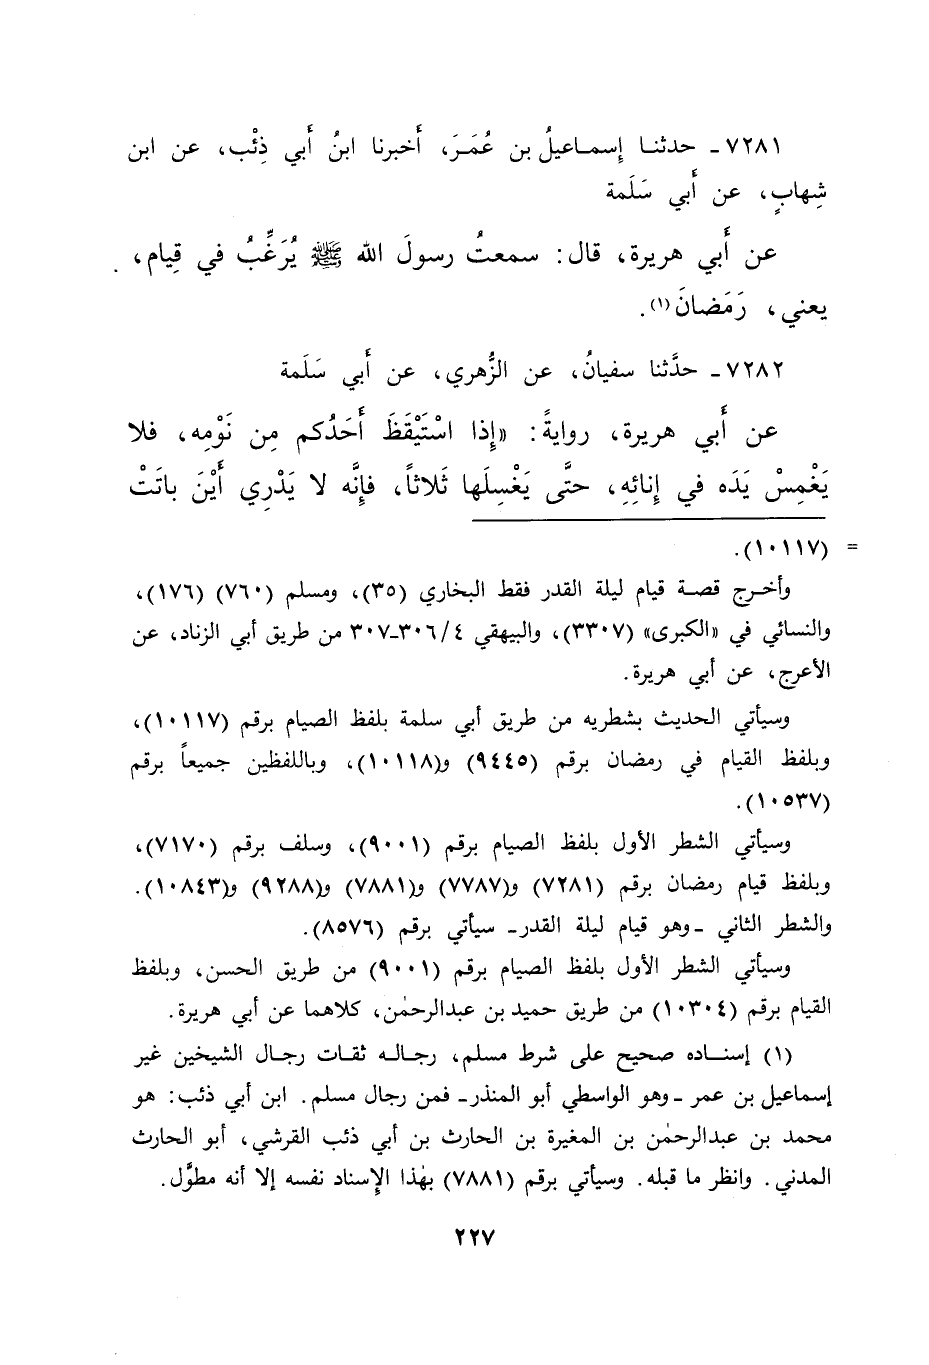 ٧٢٨١ـ حدثنا إسماعيلُ بن عُمَرَ، أَخبرنا ابنُ أَبي ذِئْب، عن ابن
شِهابٍ، عن أَبي سَلَمة
عن أَبي هريرة، قال: سمعتُ رسولَ الله ﷺ يُرَغِّبُ في قِيام،
يعني، رَمَضانَ(١).
٧٢٨٢ـ حدَّثنا سفيانُ، عن الزُّهري، عن أَبي سَلَمة
عن أَبي هريرة، روايةً: «إِذا اسْتَيْقَظَ أَحَدُكم مِن نَوْمِه، فلا
يَغْمِسْ يَدَه في إِنائِهِ، حتَّى يَغْسِلَها ثَلاثاً، فإِنَّه لا يَدْرِي أَيْنَ باتَتْ
= (١٠١١٧).
وأخرج قصة قيام ليلة القدر فقط البخاري (٣٥)، ومسلم (٧٦٠) (١٧٦)،
والنسائي في «الكبرى» (٣٣٠٧)، والبيهقي ٣٠٦/٤ـ٣٠٧ من طريق أبي الزناد، عن
الأعرج، عن أبي هريرة.
وسيأتي الحديث بشطريه من طريق أبي سلمة بلفظ الصيام برقم (١٠١١٧)،
وبلفظ القيام في رمضان برقم (٩٤٤٥) و(١٠١١٨)، وباللفظين جميعاً برقم
(١٠٥٣٧).
وسيأتي الشطر الأول بلفظ الصيام برقم (٩٠٠١)، وسلف برقم (٧١٧٠)،
وبلفظ قيام رمضان برقم (٧٢٨١) و(٧٧٨٧) و(٧٨٨١) و(٩٢٨٨) و(١٠٨٤٣).
والشطر الثاني ـ وهو قيام ليلة القدر ـ سيأتي برقم (٨٥٧٦).
وسيأتي الشطر الأول بلفظ الصيام برقم (٩٠٠١) من طريق الحسن، وبلفظ
القيام برقم (١٠٣٠٤) من طريق حميد بن عبدالرحمٰن، كلاهما عن أبي هريرة.
(١) إسناده صحيح على شرط مسلم، رجاله ثقات رجال الشيخين غير
إسماعيل بن عمر ـ وهو الواسطي أبو المنذر ـ فمن رجال مسلم. ابن أبي ذئب: هو
محمد بن عبدالرحمٰن بن المغيرة بن الحارث بن أبي ذئب القرشي، أبو الحارث
المدني. وانظر ما قبله. وسيأتي برقم (٧٨٨١) بهٰذا الإِسناد نفسه إلا أنه مطوَّل.
٢٢٧